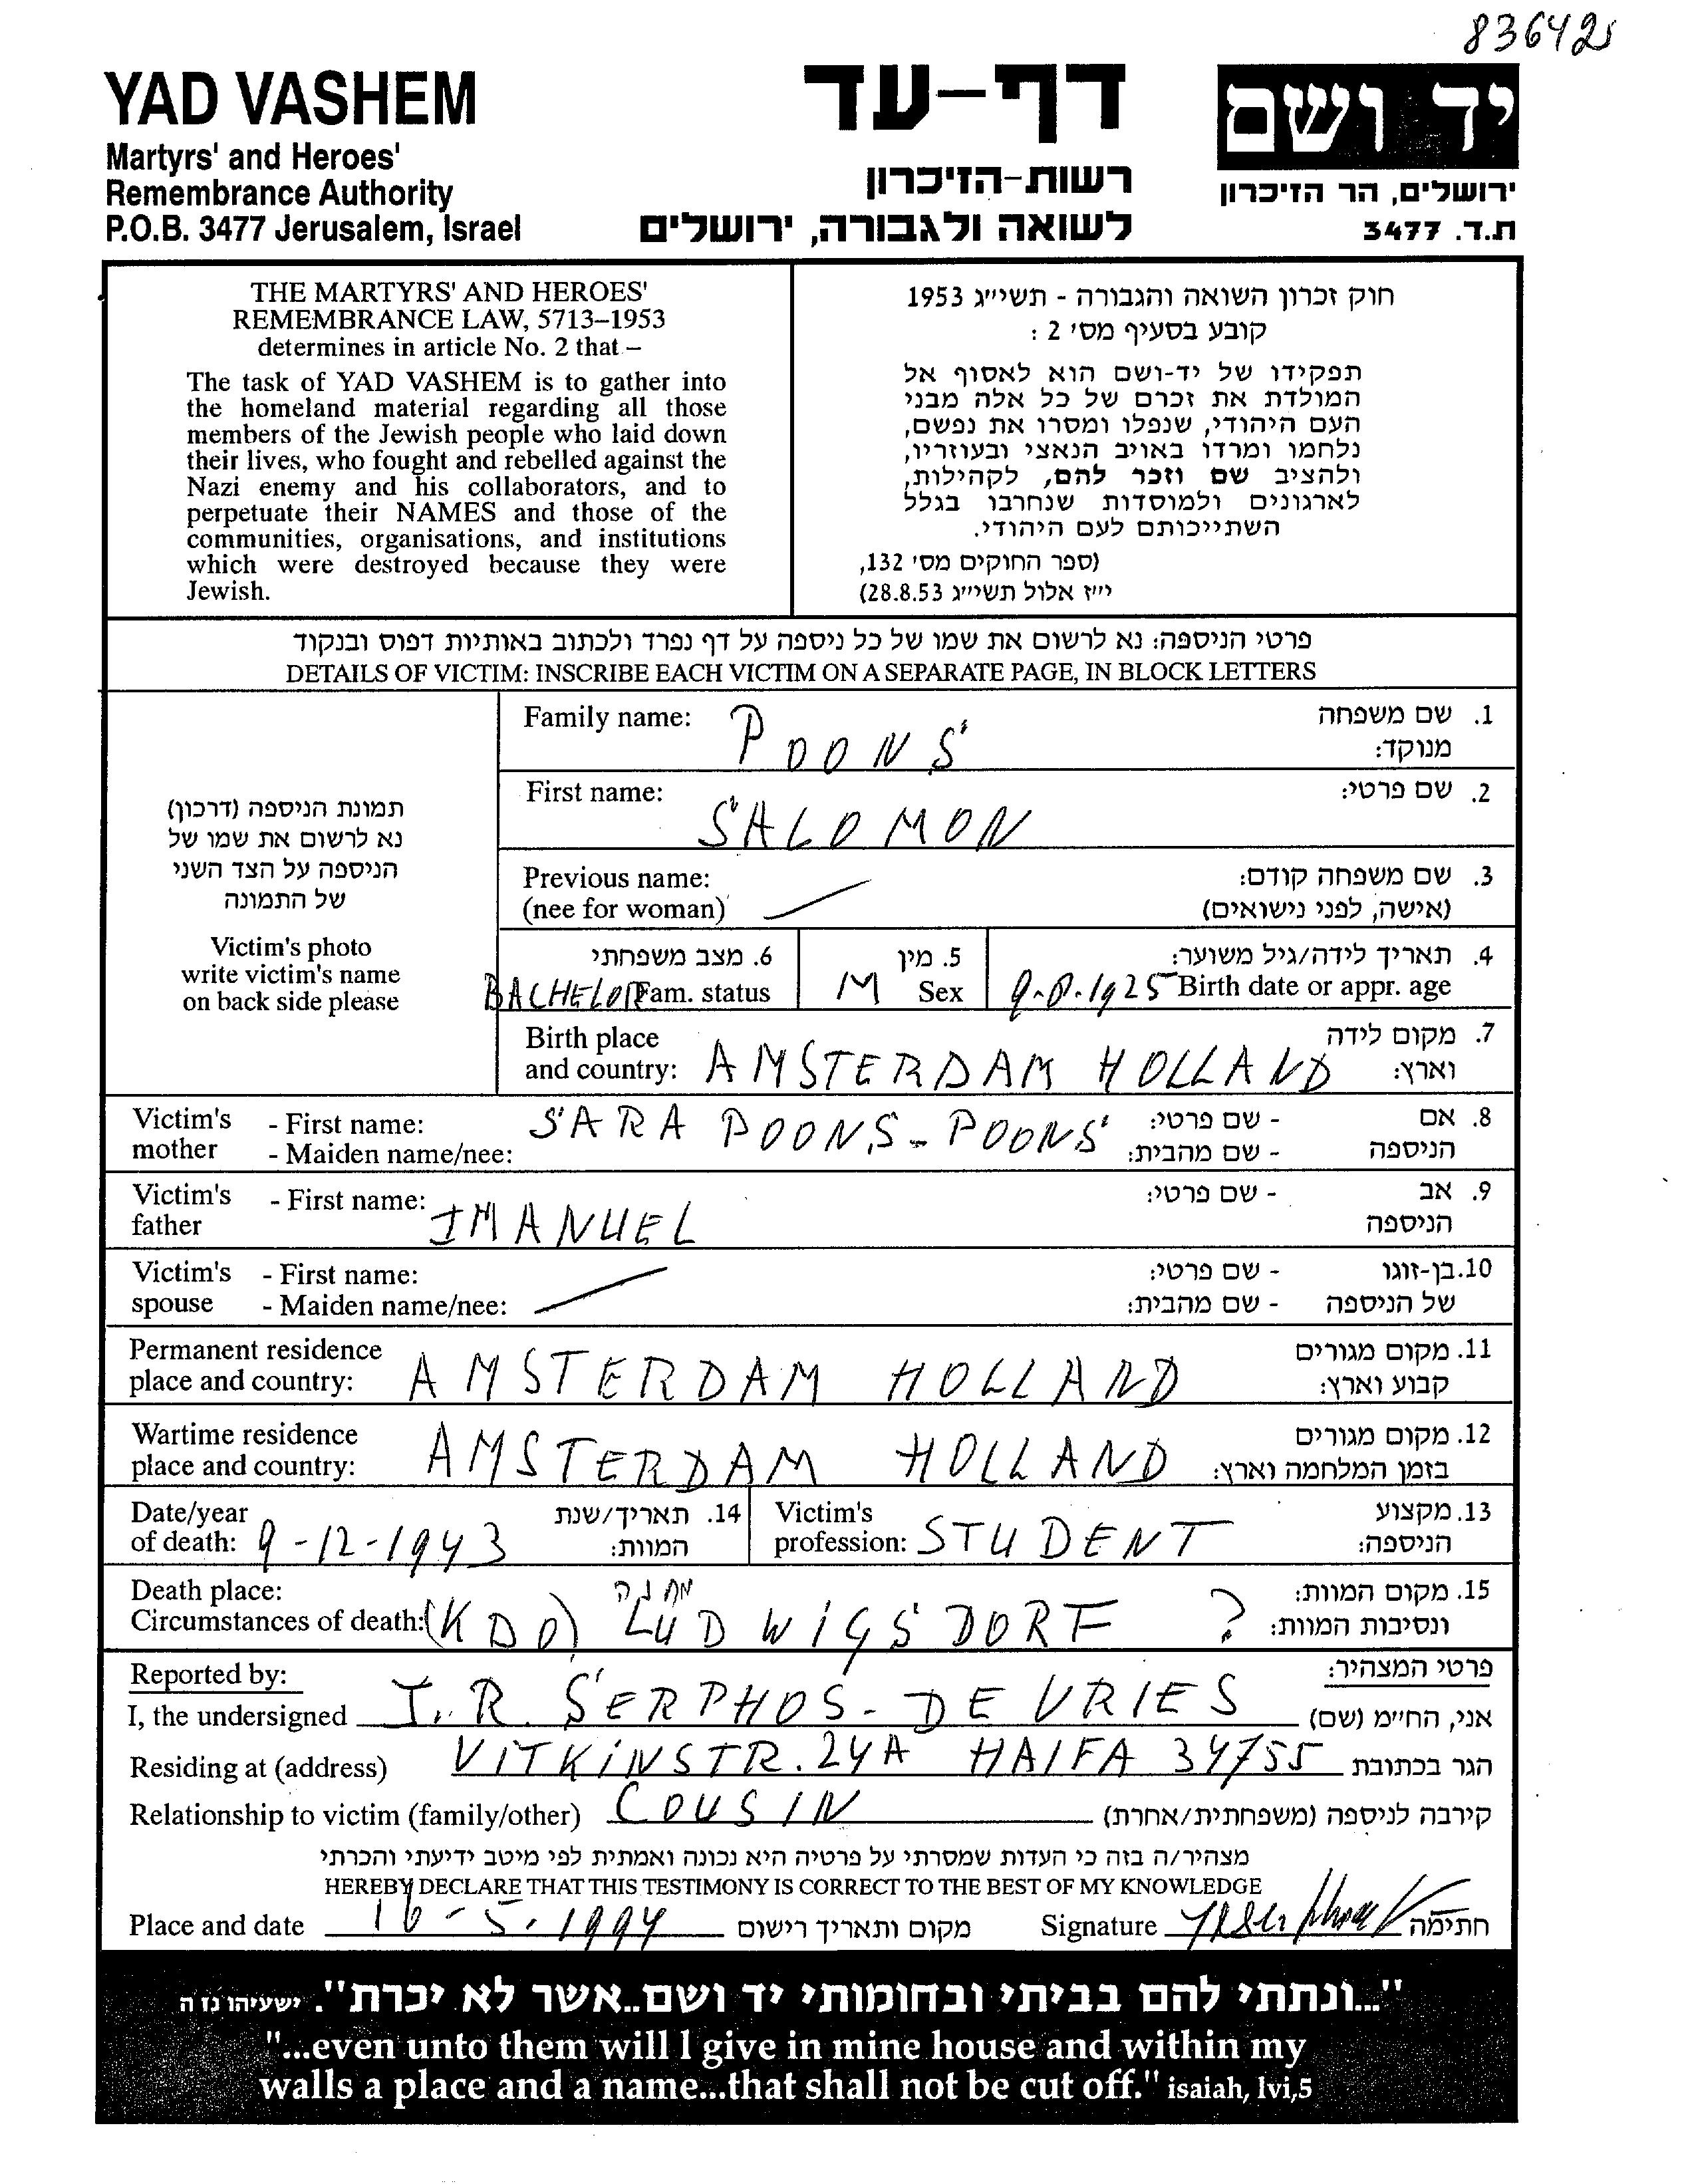 83642
YAD VASHEM
Martyrs' and Heroes'
Remembrance Authority
P.O.B. 3477 Jerusalem, Israel
דף-עד
רשות-הזיכרון
לשואה ולגבורה, ירושלים
יד ושם
ירושלים, הר הזיכרון
ת.ד. 3477
THE MARTYRS' AND HEROES'
REMEMBRANCE LAW, 5713–1953
determines in article No. 2 that –
The task of YAD VASHEM is to gather into
the homeland material regarding all those
members of the Jewish people who laid down
their lives, who fought and rebelled against the
Nazi enemy and his collaborators, and to
perpetuate their NAMES and those of the
communities, organisations, and institutions
which were destroyed because they were
Jewish.
חוק זכרון השואה והגבורה - תשי״ג 1953
קובע בסעיף מס׳ 2 :
תפקידו של יד-ושם הוא לאסוף אל
המולדת את זכרם של כל אלה מבני
העם היהודי, שנפלו ומסרו את נפשם,
נלחמו ומרדו באויב הנאצי ובעוזריו,
ולהציב שם וזכר להם, לקהילות,
לארגונים ולמוסדות שנחרבו בגלל
השתייכותם לעם היהודי.
(ספר החוקים מס׳ 132,
י״ז אלול תשי״ג 28.8.53)
פרטי הניספה: נא לרשום את שמו של כל ניספה על דף נפרד ולכתוב באותיות דפוס ובנקוד
DETAILS OF VICTIM: INSCRIBE EACH VICTIM ON A SEPARATE PAGE, IN BLOCK LETTERS
תמונת הניספה (דרכון)
נא לרשום את שמו של
הניספה על הצד השני
של התמונה
Victim's photo
write victim's name
on back side please
Family name: POONS 1. שם משפחה
מנוקד:
First name: SALOMON 2. שם פרטי:
Previous name: 3. שם משפחה קודם:
(nee for woman) (אישה, לפני נישואים)
6. מצב משפחתי 5. מין 4. תאריך לידה/גיל משוער:
BACHELOR Fam. status M Sex 9-8-1925 Birth date or appr. age
Birth place 7. מקום לידה
and country: AMSTERDAM HOLLAND וארץ:
Victim's - First name: SARA POONS - POONS - שם פרטי: 8. אם
mother - Maiden name/nee: - שם מהבית: הניספה
Victim's - First name: IMANUEL - שם פרטי: 9. אב
father הניספה
Victim's - First name: - שם פרטי: 10. בן-זוגו
spouse - Maiden name/nee: - שם מהבית: של הניספה
Permanent residence 11. מקום מגורים
place and country: AMSTERDAM HOLLAND קבוע וארץ:
Wartime residence 12. מקום מגורים
place and country: AMSTERDAM HOLLAND בזמן המלחמה וארץ:
Date/year 14. תאריך/שנת Victim's 13. מקצוע
of death: 9-12-1943 המוות: profession: STUDENT הניספה:
Death place: מחנה 15. מקום המוות:
Circumstances of death: (KDO) LUDWIGSDORF ? ונסיבות המוות:
Reported by: פרטי המצהיר:
I, the undersigned I.R. SERPHOS - DE VRIES אני, החי״מ (שם)
Residing at (address) VITKINSTR. 24A HAIFA 34755 הגר בכתובת
Relationship to victim (family/other) COUSIN קירבה לניספה (משפחתית/אחרת)
מצהיר/ה בזה כי העדות שמסרתי על פרטיה היא נכונה ואמתית לפי מיטב ידיעתי והכרתי
HEREBY DECLARE THAT THIS TESTIMONY IS CORRECT TO THE BEST OF MY KNOWLEDGE
Place and date 16-5-1994 מקום ותאריך רישום Signature חתימה
"...ונתתי להם בביתי ובחומותי יד ושם..אשר לא יכרת". ישעיהו נו ה
"...even unto them will I give in mine house and within my
walls a place and a name...that shall not be cut off." isaiah, lvi,5